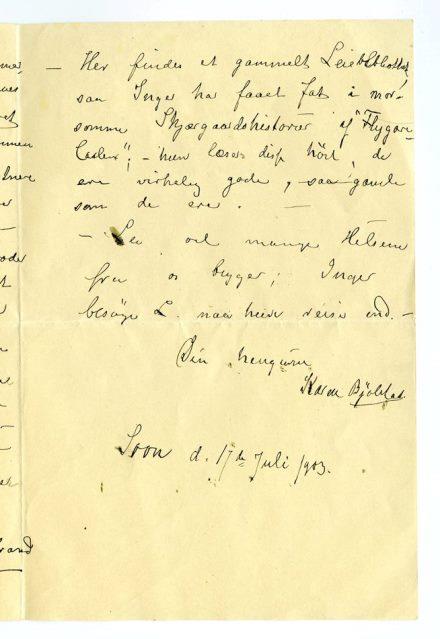 — Her findes et gammelt Leiebibliothek,
saa Inger har faaet fat i mor-
somme Skjærgaardshistorier af "Flygare-
Carlén"; – hun læser disse högt, de
ere virkelig gode, saa gamle
som de ere. —
– Lev vel mange Hilsener
fra os begge; Inger
besöge L. naar hun reise ind. –
Din hengivne
Karen Bjölstad.
Soon d. 17de Juli 1903.